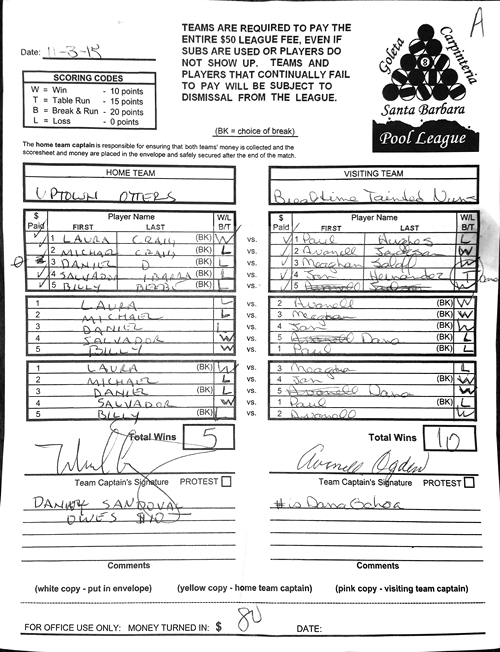 A
TEAMS ARE REQUIRED TO PAY THE
ENTIRE $50 LEAGUE FEE, EVEN IF
SUBS ARE USED OR PLAYERS DO
NOT SHOW UP. TEAMS AND
PLAYERS THAT CONTINUALLY FAIL
TO PAY WILL BE SUBJECT TO
DISMISSAL FROM THE LEAGUE.
Goleta Carpinteria
8
Santa Barbara
Pool League
Date: 11-3-15
SCORING CODES
W = Win - 10 points
T = Table Run - 15 points
B = Break & Run - 20 points
L = Loss - 0 points
(BK = choice of break)
The home team captain is responsible for ensuring that both teams' money is collected and the
scoresheet and money are placed in the envelope and safely secured after the end of the match.
HOME TEAM VISITING TEAM
UPTOWN OTTERS Breaktime Tainted Nuns
$ Paid Player Name FIRST LAST W/L B/T $ Paid Player Name FIRST LAST W/L B/T
1 LAURA CRAIG (BK) W vs. 1 Paul Hughes L
2 MICHAEL CRAIG (BK) L vs. 2 Avanell W
3 DANIEL D (BK) L vs. 3 Meaghan W
4 SALVADOR IBARRA (BK) L vs. 4 Jan Hernandez T
5 BILLY BEEBE (BK) L vs. 5 W Dana
1 LAURA L vs. 2 Avanell (BK) W
2 MICHAEL L vs. 3 Meaghan (BK) W
3 DANIEL L vs. 4 Jan (BK) W
4 SALVADOR W vs. 5 Dana (BK) L
5 BILLY W vs. 1 Paul (BK) L
1 LAURA (BK) W vs. 3 Meaghan L
2 MICHAEL L vs. 4 Jan (BK) W
3 DANIEL (BK) L vs. 5 Dana W
4 SALVADOR W vs. 1 Paul (BK) L
5 BILLY (BK) L vs. 2 Avanell W
Total Wins 5 Total Wins 10
Avanell Ogden
Team Captain's Signature PROTEST Team Captain's Signature PROTEST
DANIEL SANDOVAL # is Dana Ochoa
OWES $10
Comments Comments
(white copy - put in envelope) (yellow copy - home team captain) (pink copy - visiting team captain)
FOR OFFICE USE ONLY: MONEY TURNED IN: $ 80 DATE: